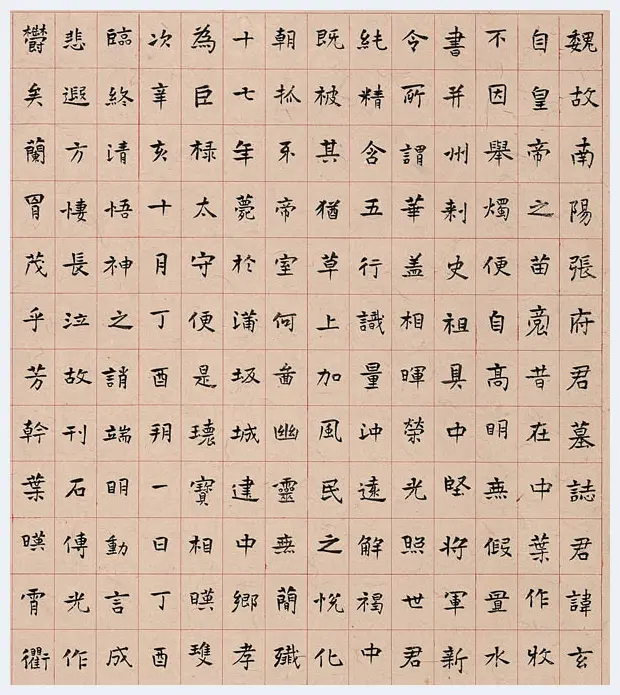 魏故南陽張府君墓誌君諱玄
自皇帝之苗裔昔在中葉作牧
不因舉燭便自高明無假置水
書并州刺史祖具中堅將軍新
令所謂華蓋相暉榮光照世君
純精含五行識量沖遠解褐中
既被其猶草上加風民之悅化
朝抓不帝室何啚幽靈無蕑殲
十七年薨於蒲坂城建中鄉孝
為巨祿太守便是瓌寶相暎雙
次辛亥十月丁酉朔一日丁酉
臨終清悟神之誚端明動言成
悲遐方悽長泣故刊石傳光作
鬱矣蘭胃茂乎芳幹葉暎霄衢